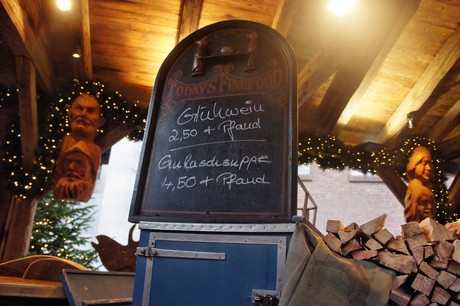 TODAY'S FOOD
Glühwein
2,50 + Pfand
Gulaschsuppe
4,50 + Pfand